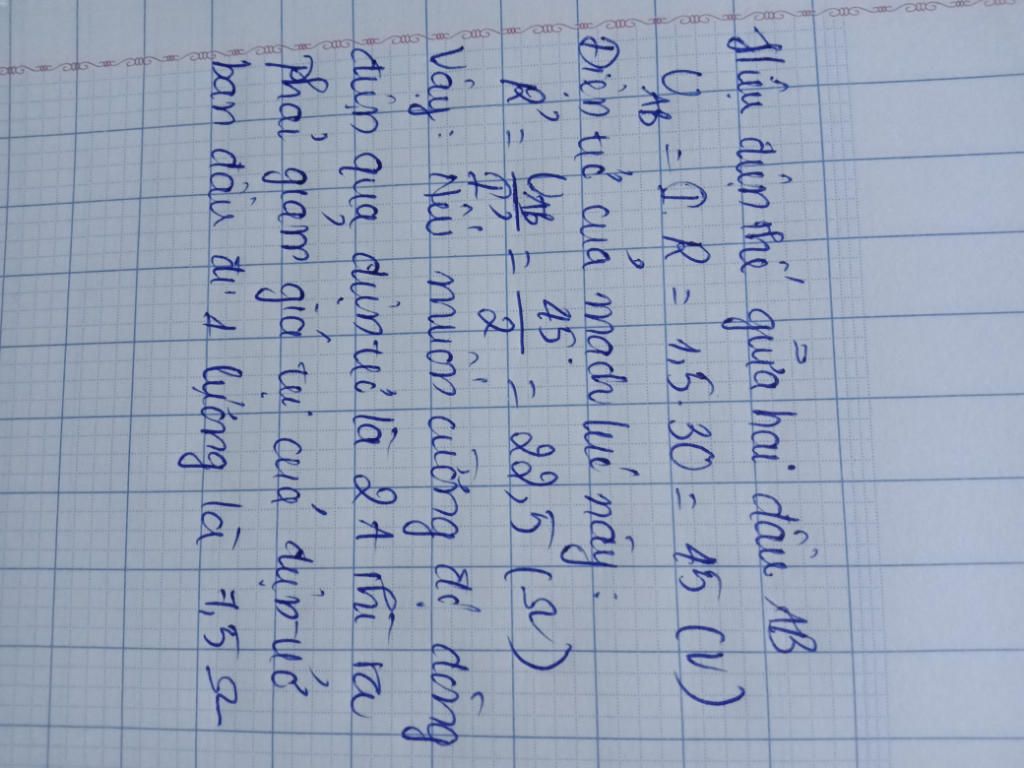 Hiệu điện thế giữa hai đầu AB
U_AB = I. R = 1,5. 30 = 45 (V)
Điện trở của mạch lúc này:
R' = U_AB / I' = 45 / 2 = 22,5 (Ω)
Vậy: Nếu muốn cường độ dòng
điện qua điện trở là 2A thì ta
phải giảm giá trị của điện trở
ban đầu đi 1 lượng là 7,5 Ω